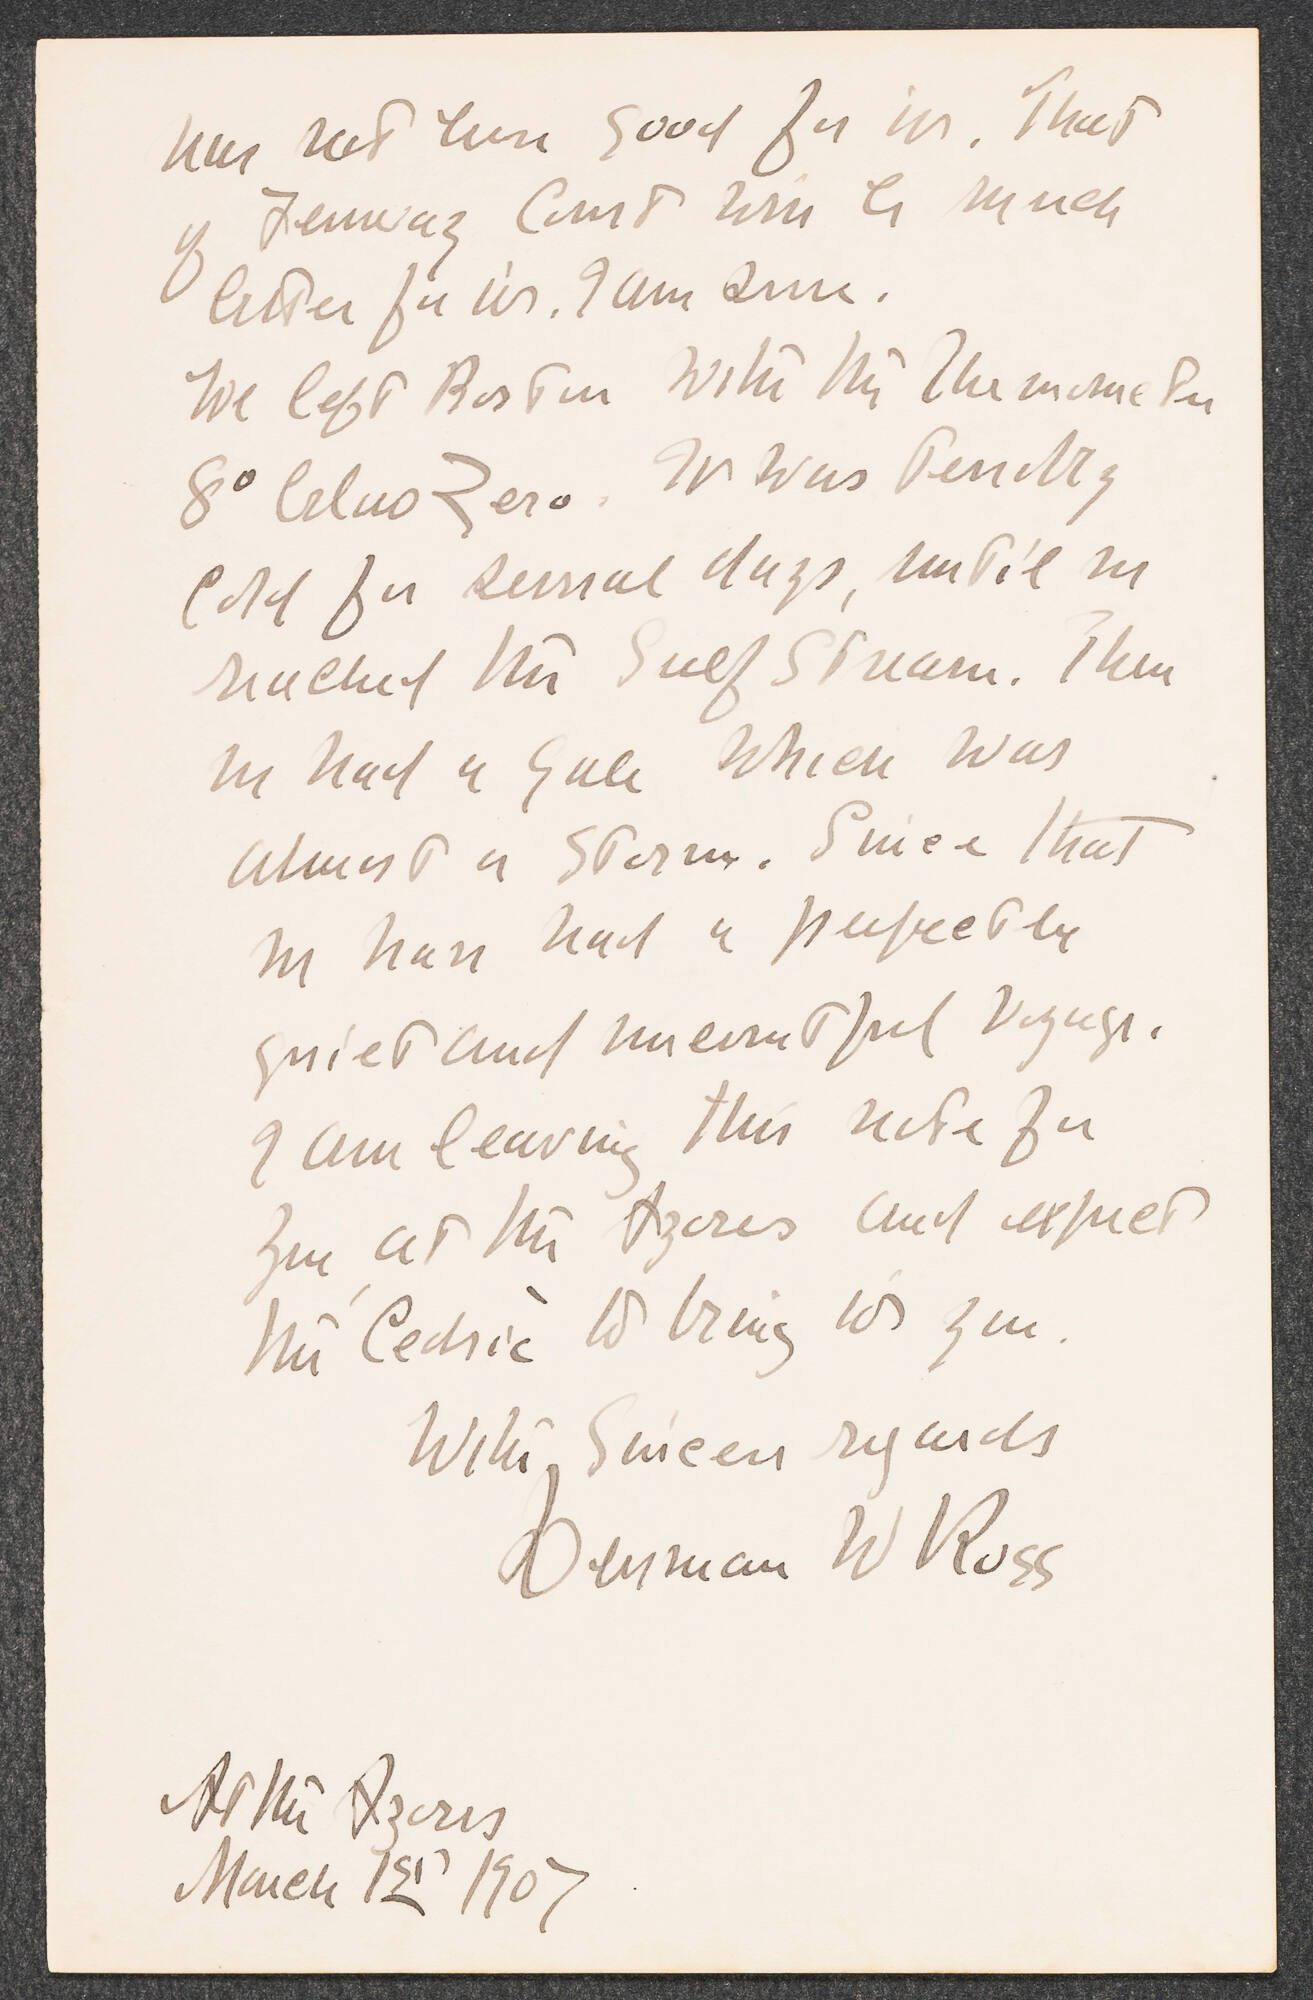 has not been good for it. That
of Fenway Court will be much
better for it. I am sure.
We left Boston with the Thermometer
8° below Zero. It was terribly
cold for several days, until we
reached the Gulf Stream. Then
we had a gale which was
almost a storm. Since that
we have had a perfectly
quiet and uneventful voyage.
I am leaving this note for
you, at the Azores and expect
the "Cedric" to bring it to you.
With sincere regards
Denman W Ross
At the Azores
March 1st 1907